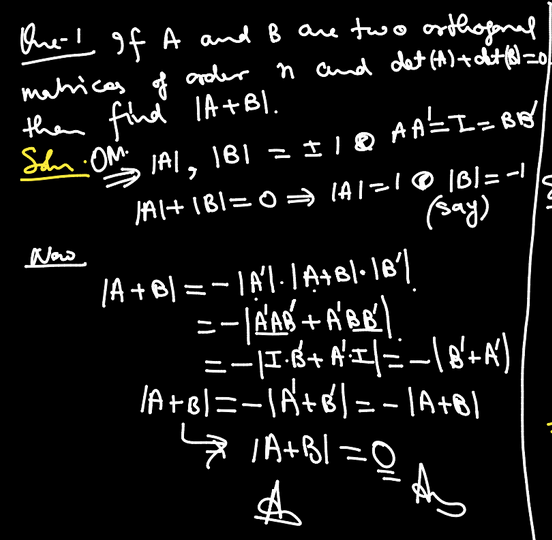 Que-1 If A and B are two orthogonal
matrices of order n and det(A)+det(B)=0
then find |A+B|.
Soln. OM. ⇒ |A|, |B| = ±1 & AA'=I=BB'
|A|+|B|=0 ⇒ |A|=1 & |B|=-1
(say)
Now
|A+B| = -|A'|.|A+B|.|B'|.
= -|A'AB' + A'BB'|
= -|I.B'+A'.I| = -|B'+A'|
|A+B| = -|A'+B'| = -|A+B|
↳ |A+B| = 0 A
A